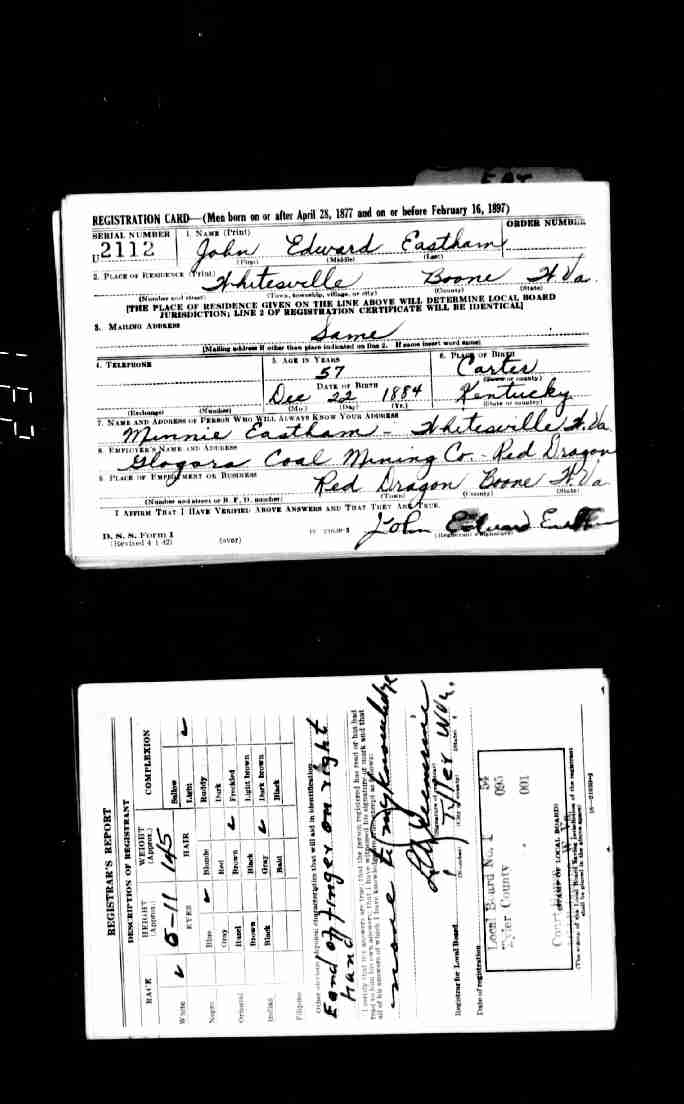 REGISTRATION CARD—(Men born on or after April 28, 1877 and on or before February 16, 1897)
SERIAL NUMBER
1. NAME (Print)
ORDER NUMBER
U2112
John Edward Eastham
(First) (Middle) (Last)
2. PLACE OF RESIDENCE (Print)
Whitesville Boone W. Va.
(Number and street) (Town, township, village, or city) (County) (State)
[THE PLACE OF RESIDENCE GIVEN ON THE LINE ABOVE WILL DETERMINE LOCAL BOARD
JURISDICTION; LINE 2 OF REGISTRATION CERTIFICATE WILL BE IDENTICAL]
3. MAILING ADDRESS
Same
[Mailing address if other than place indicated on line 2. If same insert word same]
4. TELEPHONE
5. AGE IN YEARS
6. PLACE OF BIRTH
57
Carter
(Town or county)
DATE OF BIRTH
Dec 22 1884
Kentucky
(Exchange) (Number)
(Mo.) (Day) (Yr.)
(State or country)
7. NAME AND ADDRESS OF PERSON WHO WILL ALWAYS KNOW YOUR ADDRESS
Minnie Eastham - Whitesville W. Va
8. EMPLOYER'S NAME AND ADDRESS
Glogora Coal Mining Co. - Red Dragon
9. PLACE OF EMPLOYMENT OR BUSINESS
Red Dragon Boone W. Va
(Number and street or R. F. D. number) (Town) (County) (State)
I AFFIRM THAT I HAVE VERIFIED ABOVE ANSWERS AND THAT THEY ARE TRUE.
John Edward
D. S. S. Form 1
(Revised 4-1-42) (over)
(Registrant's signature)
REGISTRAR'S REPORT
DESCRIPTION OF REGISTRANT
RACE
HEIGHT (Approx.)
WEIGHT (Approx.)
COMPLEXION
5-11
145
EYES
HAIR
White
Negro
Oriental
Indian
Filipino
Blue
Gray
Hazel
Brown
Black
Blonde
Red
Brown
Black
Gray
Bald
Sallow
Light
Ruddy
Dark
Freckled
Light brown
Dark brown
Black
Other obvious physical characteristics that will aid in identification
End off finger on right
hand
I certify that my answers are true; that the person registered has read or has had
read to him his own answers; that I have witnessed his signature or mark and that
all of his answers of which I have knowledge are true, except as follows:
none to my knowledge
Registrar for Local Board
1 Tyler W. Va.
(Number) (City or county) (State)
Date of registration
Local Board No. 1 54
Tyler County 095
001
(STAMP OF LOCAL BOARD)
(The stamp of the Local Board having jurisdiction of the registrant
shall be placed in the above space)